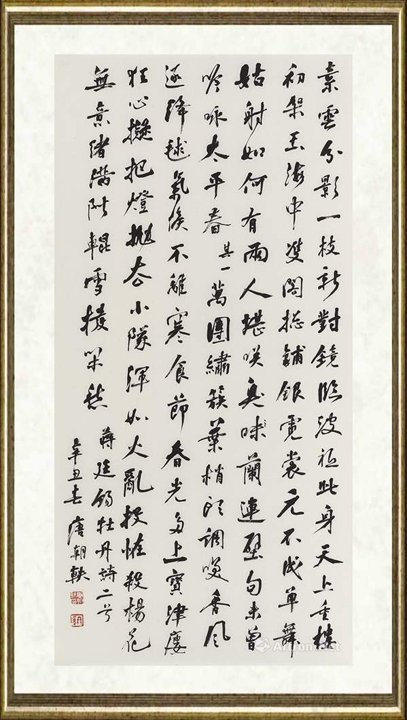 素雲分影一枝新對鏡臨波祇此身天上重樓
初架玉海中雙閣總鋪銀霓裳元不成單舞
姑射如何有兩人堪笑臭味蘭連璧句未曾
吟咏太平春其一萬團繡簇葉梢頭調笑香風
逐降毬氣候不離寒食節春光多上寶津樓
狂心擬把燈拋去小隊渾如火亂投惟殺楊花
無意緒滿階輥雪
蔣廷錫牡丹詩二首
辛丑春 唐朝軼
Artron.net